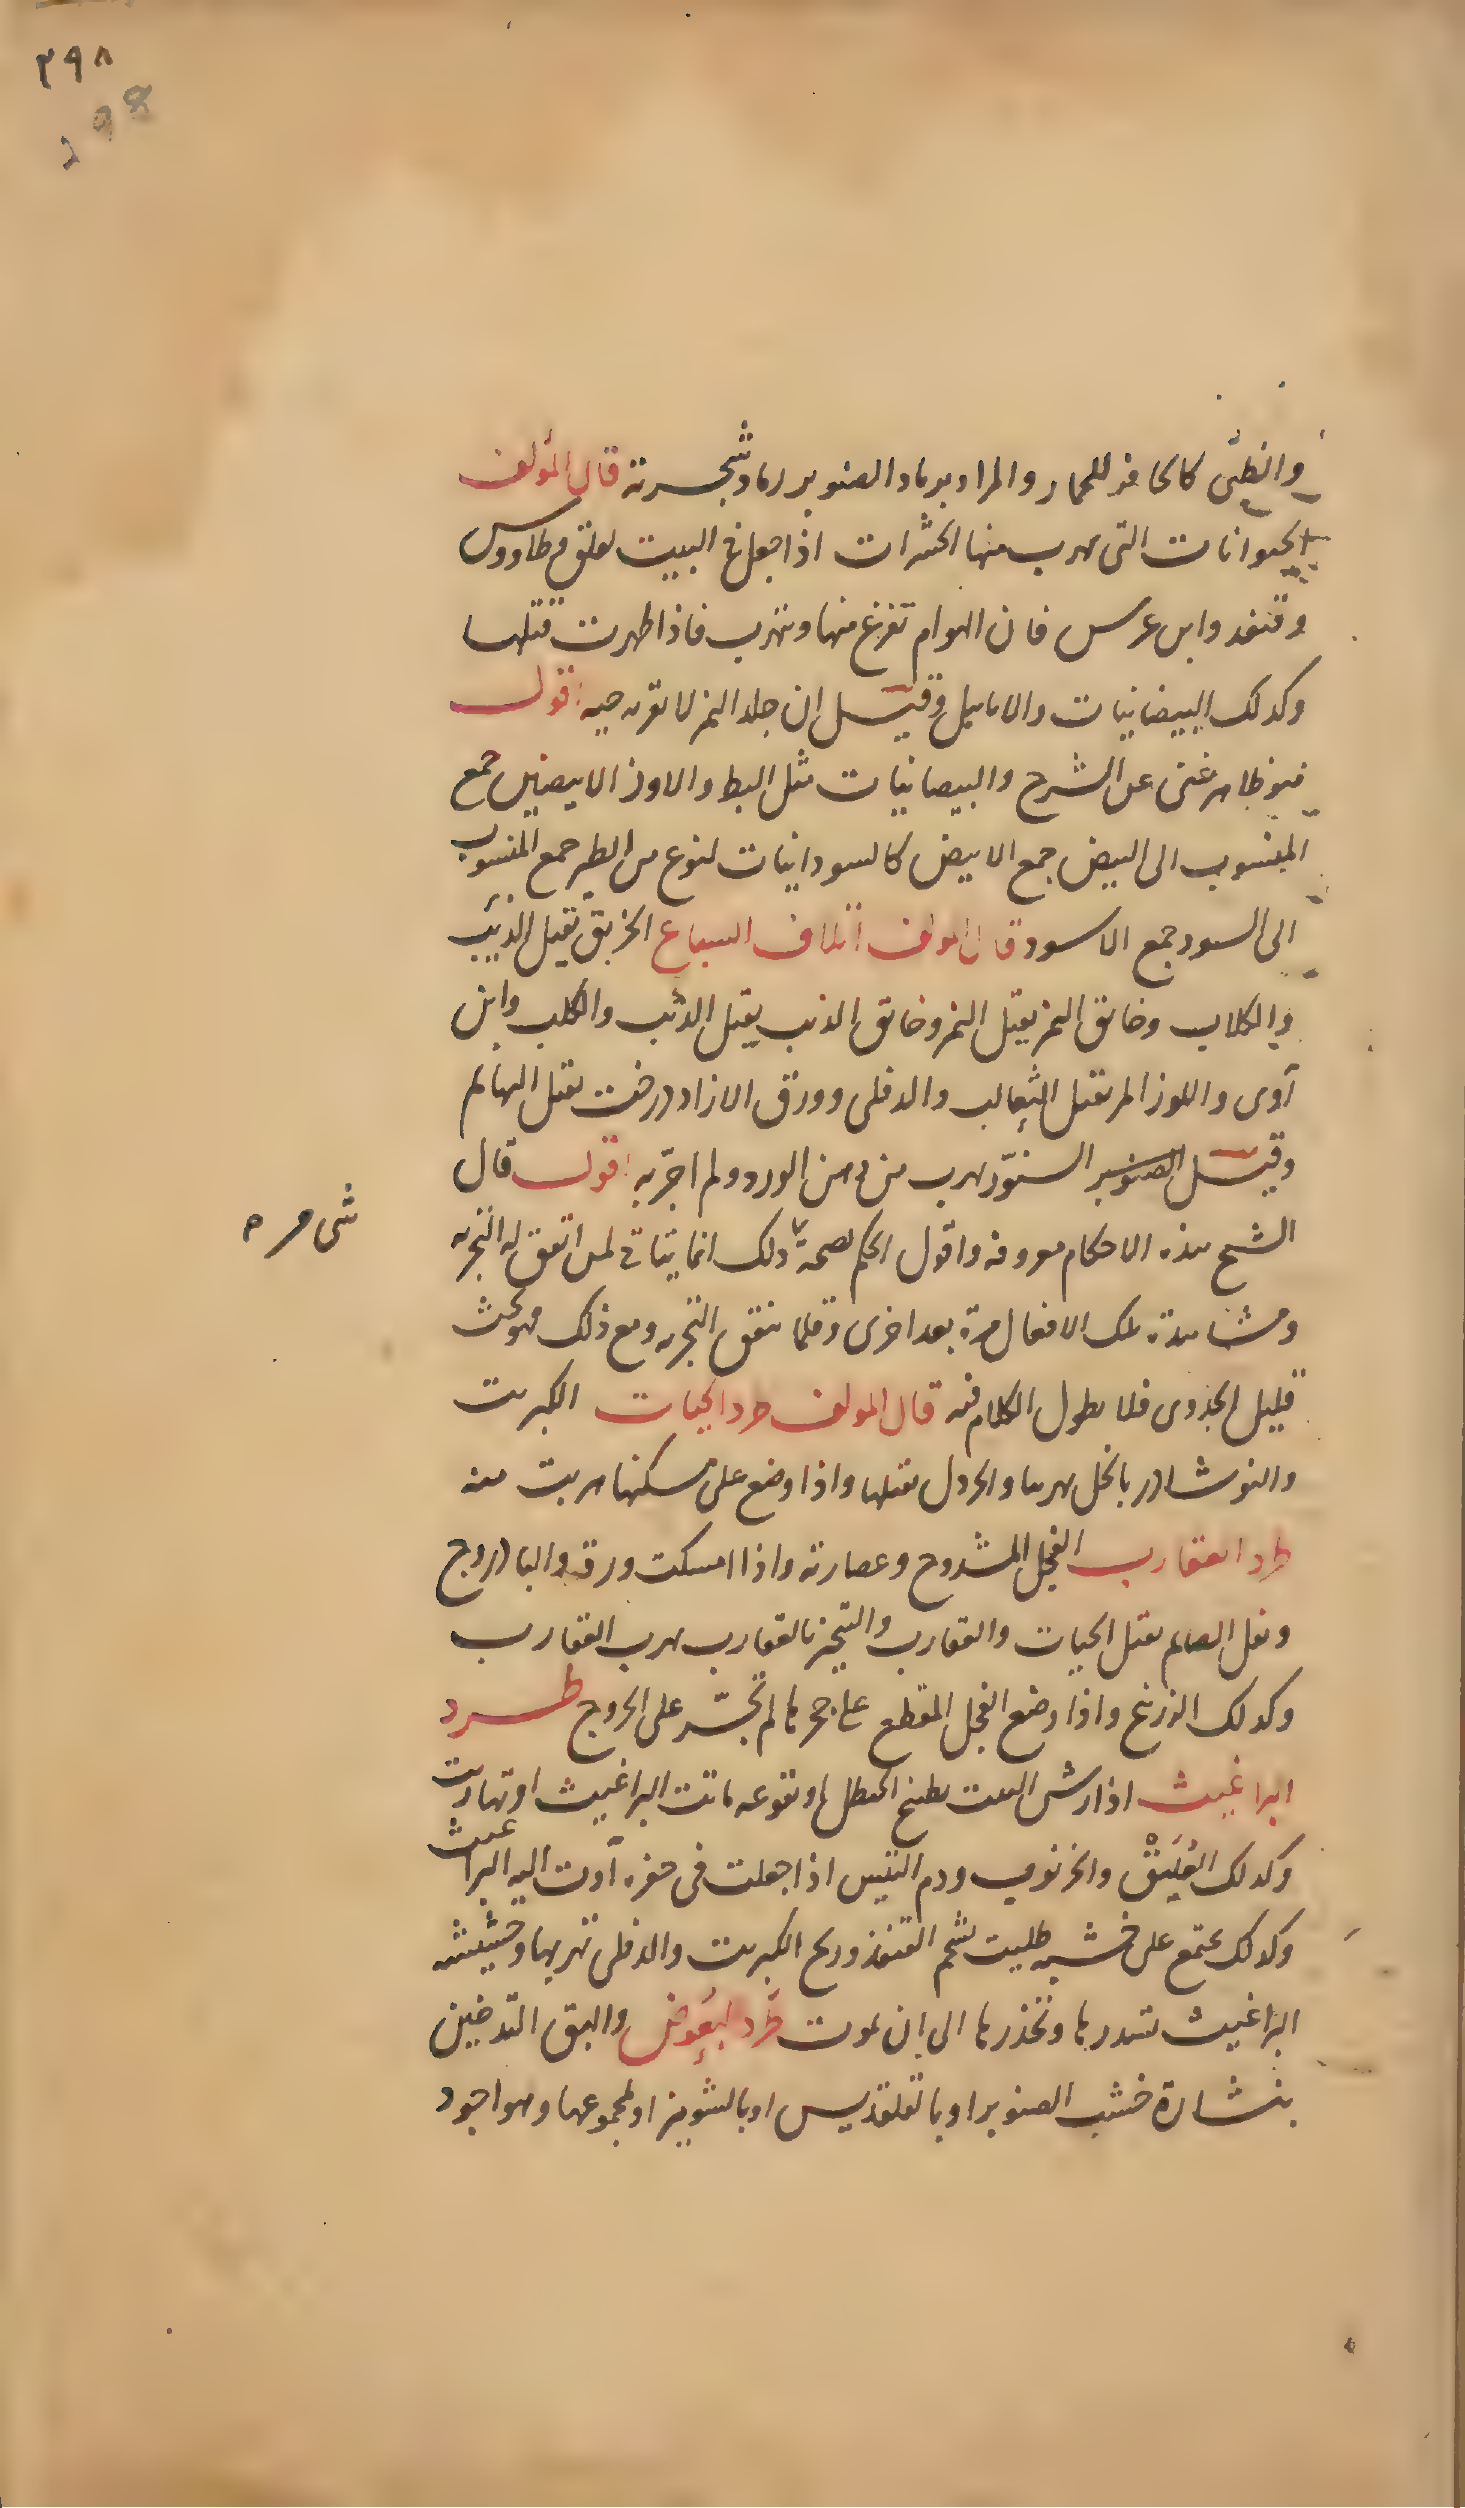 ٢٩٨
٢٩٨
والظبى كالحافر للحمار والمراد برماد الصنوبر رماد شجرته قال المؤلف
الحيوانات التى يهرب منها الحشرات اذا جعل فى البيت لقلق وطاووس
وقنفد وابن عرس فان الهوام تفزع منها وتهرب فاذا ظهرت قتلها
وكذلك البيضانيات والايابيل وقيل ان جلد النمر لا تقربه حيه اقول
غنى عن الشرح والبيضانيات مثل البط والاوز الابيضين جمع
المنسوب الى البيض جمع الابيض كالسودانيات لنوع من الطير جمع المنسوب
الى السود جمع الاسود قال المولف اتلاف السباع الخربق يقتل الذيب
والكلاب وخانق النمر يقتل النمر وخانق الذيب يقتل الذئب والكلب وابن
آوى واللوز المر يقتل الثعالب والدفلى وورق الازاددرخت يقتل البهائم
وقيل الصنوبر السنّور يهرب من دهن الورد ولم اجرّبه اقول قال
الشيخ هذه الاحكام معروفه واقول الحكم بصحة ذلك انما يتاتى لمن اتفق له التجربه
ومشاهدة تلك الافعال مرة بعد اخرى وقلما يتفق التجربه ومع ذلك فهو بحث
قليل الجدوى فلا يطول الكلام فيه قال المولف طرد الحيات الكبريت
والنوشادر بالخل يهربها والخردل يقتلها واذا وضع على مسكنها هربت منه
طرد العقارب الفجل المشدوح وعصارته واذا امسكت ورقه والبادروج
وتفل الصايم يقتل الحيات والعقارب والتبخير بالعقارب يهرب العقارب
وكذلك الزرنيخ واذا وضع الفجل المقطع على جحرها لم تجسّر على الخروج طرد
البراغيث اذا رش البيت بطبيخ الحنظل او نقوعه ماتت البراغيث او تهاربت
وكذلك العُلَيْق والخرنوب ودم التيس اذا جعلت فى حفره آوت اليه البراغيث
وكذلك يجتمع على خشبه طليت بشحم القنفذ وريح الكبريت والدفلى تهربها وحشيشه
البراغيث تسدرها وتخدرها الى ان تموت طرد البعوض والبق التدخين
بنشارة خشب الصنوبر او بالقلقديس او بالشونيز او بمجموعها وهو اجود